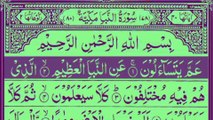 سُوْرَةُ النَّبَاِ مَكِّيَّةٌ
بِسْمِ اللّٰهِ الرَّحْمٰنِ الرَّحِيْمِ
عَمَّ يَتَسَآءَلُوْنَ ۝١ عَنِ النَّبَاِ الْعَظِيْمِ ۝٢ الَّذِيْ
هُمْ فِيْهِ مُخْتَلِفُوْنَ ۝٣ كَلَّا سَيَعْلَمُوْنَ ۝٤ ثُمَّ كَلَّا